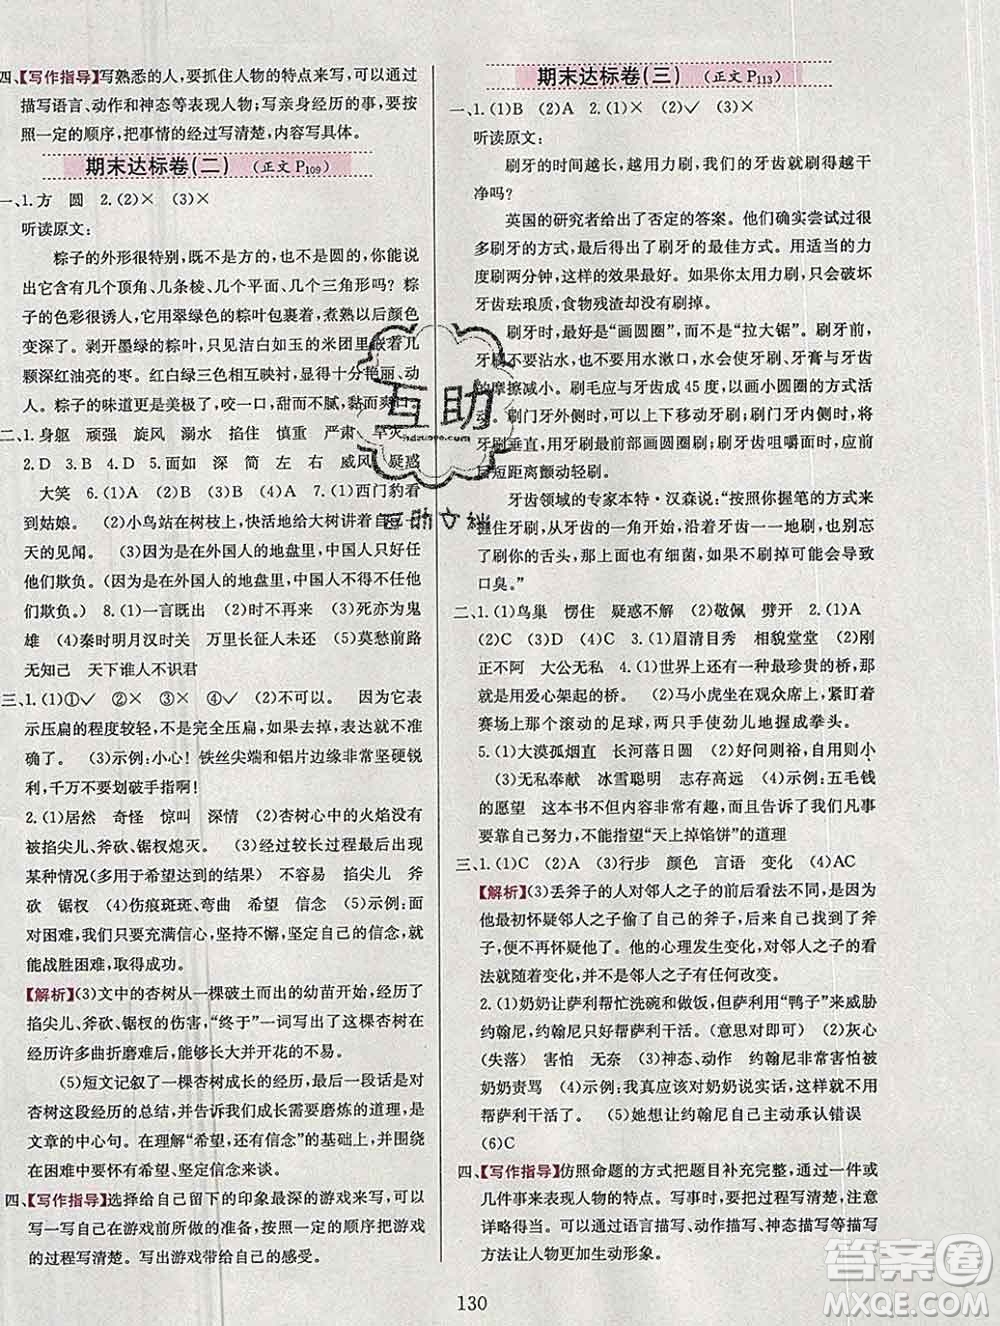 四、【写作指导】写熟悉的人,要抓住人物的特点来写,可以通过
描写语言、动作和神态等表现人物;写亲身经历的事,要按
照一定的顺序,把事情的经过写清楚、写具体。
期末达标卷(二) (正文 P109)
一、1.方 圆 2.(2)× (3)×
听读原文:
粽子的外形很特别,既不是方的,也不是圆的,你能说
出它有几个顶角、几条棱、几个平面、几个三角形吗?粽
子的色彩很漂亮,它用翠绿色的粽叶包裹着,煮熟以后颜色
变深了。剥开墨绿的粽叶,只见洁白如玉的米团里嵌着几
颗深红油亮的枣。红白绿三色相互映衬,十分
极了。粽子的味道更是美极了,咬一口,甜而不腻,黏而爽口。
二、1.身躯 顽强 旋风 溺水 掐住 慎重 严肃 旱灾
2.D 3.B 4.D 5.面如 深 简 左 右 威风 疑惑
大笑 6.(1)A (2)D (3)B (4)A 7.(1)西门豹看
到姑娘。 (2)小鸟站在树枝上,快活地给大树讲着自
天的见闻。 (3)因为是在外国人的地盘里,中国人只好任
他们欺负。(因为是在外国人的地盘里,中国人只好任
他们欺负。) 8.(1)一言既出 (2)时不再来 (3)死亦为鬼
雄 (4)秦时明月汉时关 万里长征人未还 (5)莫愁前路
无知己 天下谁人不识君
三、1.(1)①✓ ②× ③× ④✓ (2)不可以。 因为它表
示压扁的程度较轻,不是完全压扁,如果去掉,表达就不准
确了。 (3)示例:小心!铁丝尖端和铝片边缘非常坚硬锐
利,千万不要划破手指啊!
2.(1)居然 奇怪 惊叫 深情 (2)杏树心中的火焰没有
被掐尖儿、斧砍、锯杈熄灭。 (3)经过较长过程最后出现
某种情况(多用于希望达到的结果) 人 掐尖儿 斧
砍 锯杈 (4)伤痕斑斑、弯曲 希望 信念 (5)示例:面
对困难,我们只要充满信心,坚持不懈,有坚定的信念,就
能战胜困难,取得成功。
【解析】(3)文中的杏树从一棵破土而出的幼苗开始,经历了
掐尖儿、斧砍、锯杈的伤害,“终于”一词写出了这棵杏树在
经历许多曲折磨难后,能够长大并开花的不易。
(5)短文记叙了一棵杏树成长的经历,最后一段话是对
杏树经历的总结,并告诉我们成长需要磨炼的道理,是
文章的中心句。在理解“希望,还有信念”的基础上,并围绕
坚持希望、坚定信念来谈。
四、【写作指导】选择给自己留下的印象最深的游戏来写,可以
写一写自己在游戏前所做的准备,按照一定的顺序把游戏
的过程写清楚。写出游戏带给自己的感受。
期末达标卷(三) (正文 P113)
一、1.(1)B (2)A 2.(1)× (2)✓ (3)×
听读原文:
刷牙的时间越长,越用力刷,我们的牙齿就会刷得越干
净吗?
英国的研究者给出了否定的答案。他们确实尝试过很
多刷牙的方式,最后得出了刷牙的最佳方式。用适当的力
度刷两分钟,这样的效果最好。如果你太用力刷,会破坏
牙齿珐琅质,食物残渣却没有刷掉。
刷牙时,最好是“画圆圈”,而不是“拉大锯”。刷牙前,
牙刷不要沾水,也不要用水漱口,这样会让牙膏与牙齿
的摩擦减小。刷毛应与牙齿成 45 度,以画小圆圈的方式活动
刷门牙外侧时,可以上下移动牙刷;刷门牙内侧时,应
以牙刷的最前部画圆圈刷;刷牙齿咀嚼面时,应
短距离颤动轻刷。
牙齿领域的专家本特·汉森说:“按照你握笔的方式来
握住牙刷,从牙齿的一角开始,沿着牙齿一一地刷,也别忘
了刷你的舌头,因为那里也有细菌,如果不刷掉可能会导致
口臭。”
二、1.(1)鸟巢 愣住 疑惑不解 (2)敬佩 劈开 2.(1)A
(2)C (3)D 3.(1)眉清目秀 相貌堂堂 (2)刚
正不阿 大公无私 4.(1)世界上还有一种最珍贵的桥,那
就是用爱心架起的桥。 (2)马小虎坐在观众席上,紧盯着
赛场上那个滚动的足球,两只手使劲儿地握成拳头。
5.(1)大漠孤烟直 长河落日圆 (2)好问则裕,自用则小
(3)无私奉献 冰雪聪明 志存高远 (4)示例:五毛钱
的愿望 这本书不但内容非常有趣,而且告诉了我们凡事
要靠自己的双手去努力,不能指望“天上掉馅饼”的道理
三、1.(1)C (2)A (3)行步 颜色 言语 变化 (4)AC
【解析】(3)丢斧子的人对邻人之子的前后看法不同,是因为
他最初怀疑邻人之子偷了自己的斧子,后来找到了斧
子,便不再怀疑他了。他的心理发生变化,对邻人之子的看
法就随着变化,并不是邻人之子有任何改变。
2.(1)奶奶让萨利帮忙洗碗和做饭,但萨利用“鸭子”来威胁
约翰尼,约翰尼只好帮萨利干活。(意思对即可) (2)灰心
(失落) 害怕 无奈 (3)神态、动作 约翰尼非常害怕被
奶奶责骂 (4)示例:我真应该对奶奶说实话,这样就不用
帮萨利干活了。 (5)她想让约翰尼主动承认错误
(6)C
四、【写作指导】仿照命题的方式把题目补充完整,通过一件或
几件事来表现人物的特点。写事时,要按一定顺序写清楚,注意
详略得当。可以通过语言描写、动作描写、神态描写等描写
方法让人物更加生动形象。
互助
互助文档
答案圈
MXQE.COM
130